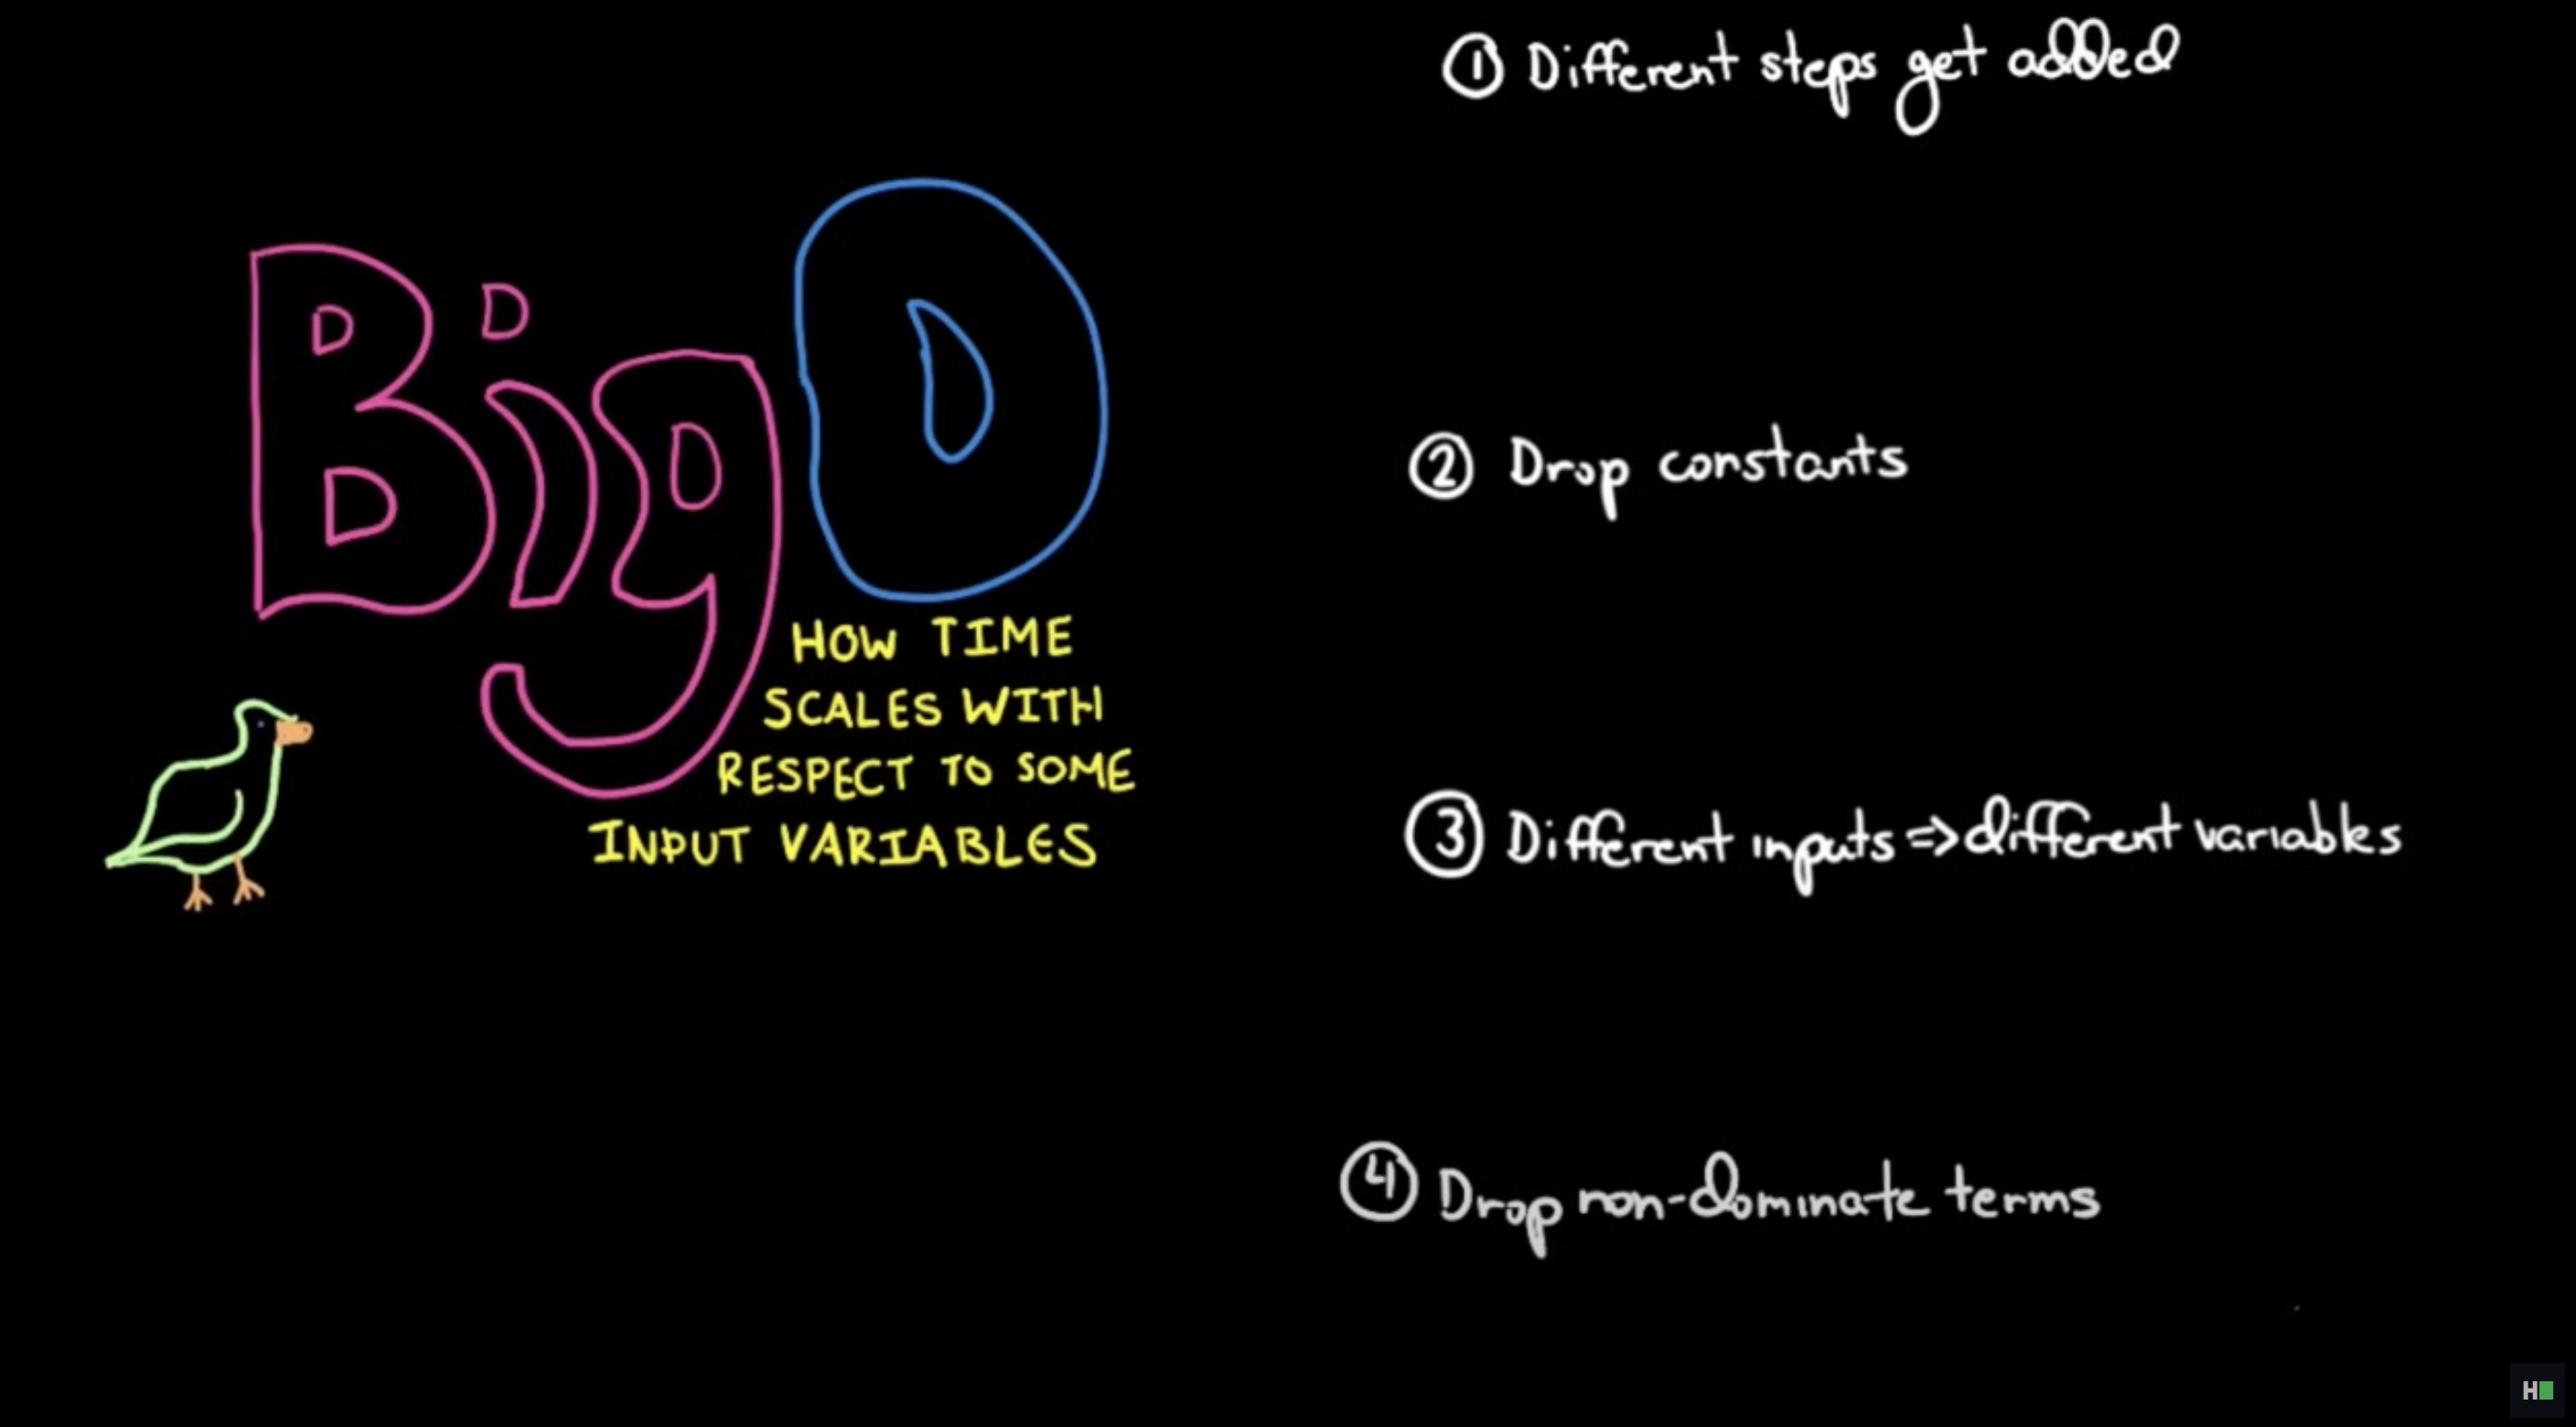 Big O
HOW TIME
SCALES WITH
RESPECT TO SOME
INPUT VARIABLES
① Different steps get added
② Drop constants
③ Different inputs => different variables
④ Drop non-dominate terms
H